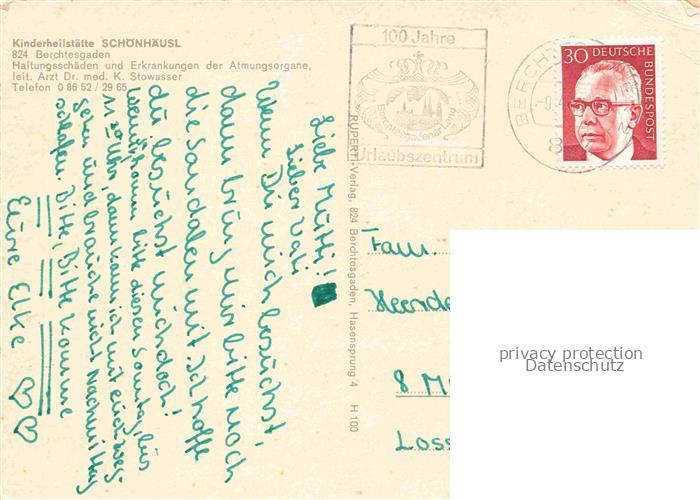 Kinderheilstätte SCHÖNHÄUSL
824 Berchtesgaden
Haltungsschäden und Erkrankungen der Atmungsorgane,
leit. Arzt Dr. med. K. Stowasser
Telefon 0 86 52 / 29 65
100 Jahre
Berchtesgadener Land
Urlaubszentrum
BERCH
30 DEUTSCHE
BUNDESPOST
Liebe Mutti!
Lieber Vati
Wenn Du mich besuchst,
dann bring mir bitte noch
die Sandalen mit. Ich hoffe
du besuchst mich doch!
Wenn, komm bitte diesen Sonntag, bis
11 Uhr, dann kann ich mit euch weg-
gehen und brauche nicht Nachmittag
schlafen. Bitte, Bitte komme
Eure Elke
RUPERTI-Verlag, 824 Berchtesgaden, Hasensprung 4 H 100
Fam.
8 M
Loss
privacy protection
Datenschutz